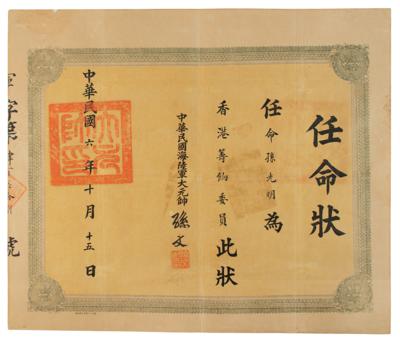 任命狀
任命孫光明為
香港籌餉委員此狀
中華民國海陸軍大元帥 孫文
中華民國六年十月十五日
字第
號